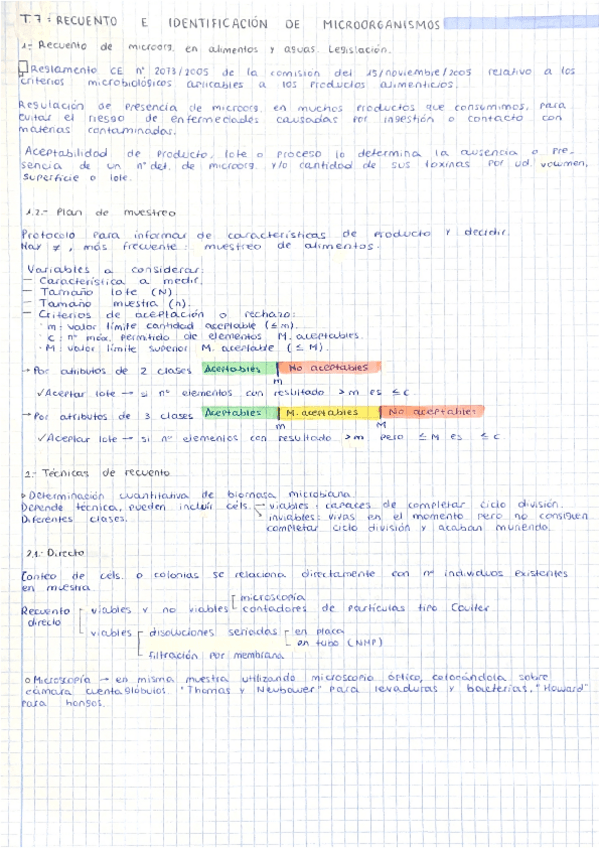 T.7: RECUENTO E IDENTIFICACIÓN DE MICROORGANISMOS
1.- Recuento de microorg. en alimentos y aguas. Legislación.
Reglamento CE nº 2073/2005 de la comisión del 15/noviembre/2005 relativo a los
criterios microbiológicos aplicables a los productos alimenticios.
Regulación de presencia de microorg. en muchos productos que consumimos, para
evitar el riesgo de enfermedades causadas por ingestión o contacto con
materias contaminadas.
Aceptabilidad de producto, lote o proceso lo determina la ausencia o pre-
sencia de un nº det. de microorg. y/o cantidad de sus toxinas por ud. volumen,
superficie o lote.
1.2.- Plan de muestreo
Protocolo para informar de características de producto y decidir.
Hay ≠, más frecuente: muestreo de alimentos.
Variables a considerar:
— Característica a medir.
— Tamaño lote (N)
— Tamaño muestra (n).
— Criterios de aceptación o rechazo:
· m: valor límite cantidad aceptable (≤ m).
· c: nº máx. permitido de elementos M. aceptables.
· M: valor límite superior M. aceptable (≤ M)
→ Por atributos de 2 clases Aceptables | No aceptables
m
✓ Aceptar lote → si nº elementos con resultado > m es ≤ c
→ Por atributos de 3 clases Aceptables | M. aceptables | No aceptables
m M
✓ Aceptar lote → si nº elementos con resultado > m pero ≤ M es ≤ c
2.- Técnicas de recuento
Determinación cuantitativa de biomasa microbiana.
Depende técnica, pueden incluir céls. → viables: capaces de completar ciclo división.
Diferentes clases. inviables: vivas en el momento pero no consiguen
completar ciclo división y acaban muriendo.
2.1.- Directo
Conteo de céls. o colonias se relaciona directamente con nº individuos existentes
en muestra.
microscopía
Recuento viables y no viables contadores de partículas tipo Coulter
directo
viables disoluciones seriadas en placa
en tubo (NMP)
filtración por membrana
o Microscopía → en misma muestra utilizando microscopio óptico, colocándola sobre
cámara cuentaglóbulos. "Thomas y Neubauer" para levaduras y bacterias. "Howard"
para hongos.